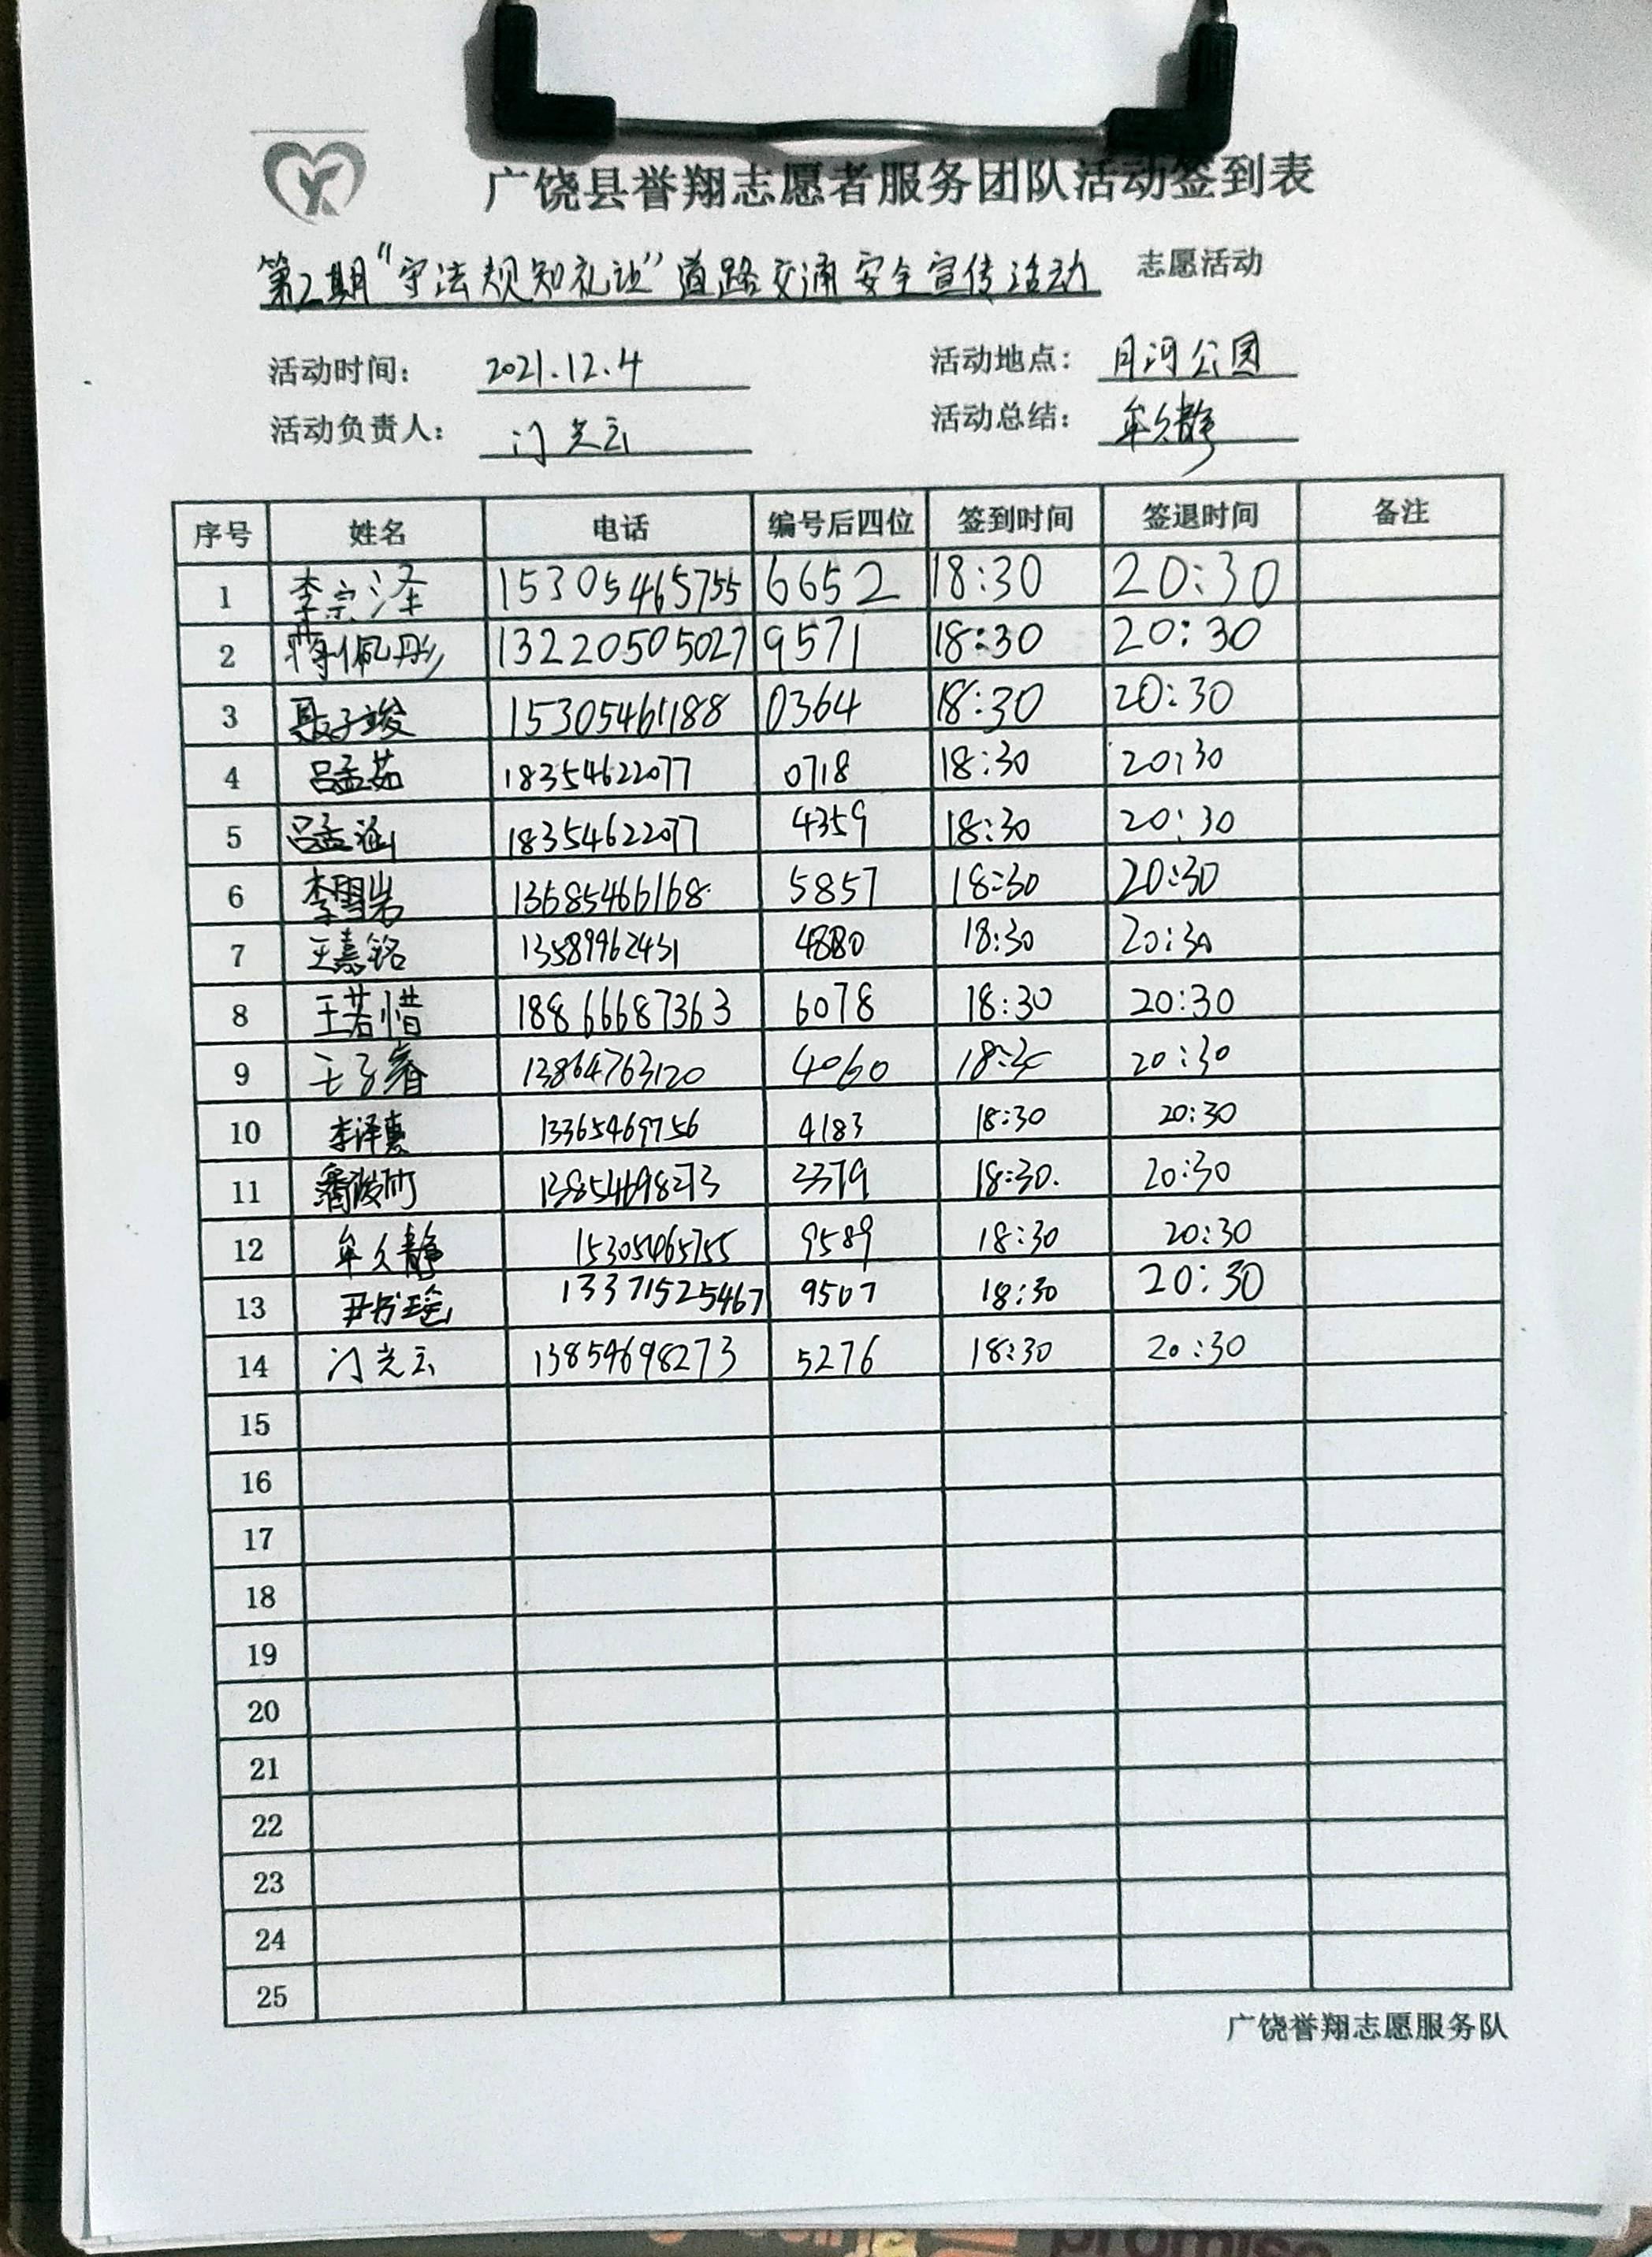 广饶县誉翔志愿者服务团队活动签到表
第2期“守法规知礼让”道路交通安全宣传活动 志愿活动
活动时间: 2021.12.4 活动地点: 月河公园
活动负责人: 门光云 活动总结: 牟久静
序号 姓名 电话 编号后四位 签到时间 签退时间 备注
1 李宗泽 15305465755 6652 18:30 20:30
2 蒋佩彤 13220505027 9571 18:30 20:30
3 聂子竣 15305461188 0364 18:30 20:30
4 吕孟茹 18354622077 0718 18:30 20:30
5 吕孟涵 18354622077 4359 18:30 20:30
6 李雪岩 13685466168 5857 18:30 20:30
7 王嘉铭 13589962431 4880 18:30 20:30
8 王若惜 18866687363 6078 18:30 20:30
9 王子睿 13864763120 4060 18:30 20:30
10 李泽惠 13365469756 4183 18:30 20:30
11 13854698273 3379 18:30. 20:30
12 牟久静 15305465755 9589 18:30 20:30
13 尹书瑶 13371525467 9507 18:30 20:30
14 门光云 13854698273 5276 18:30 20:30
15
16
17
18
19
20
21
22
23
24
25
广饶誉翔志愿服务队
promise